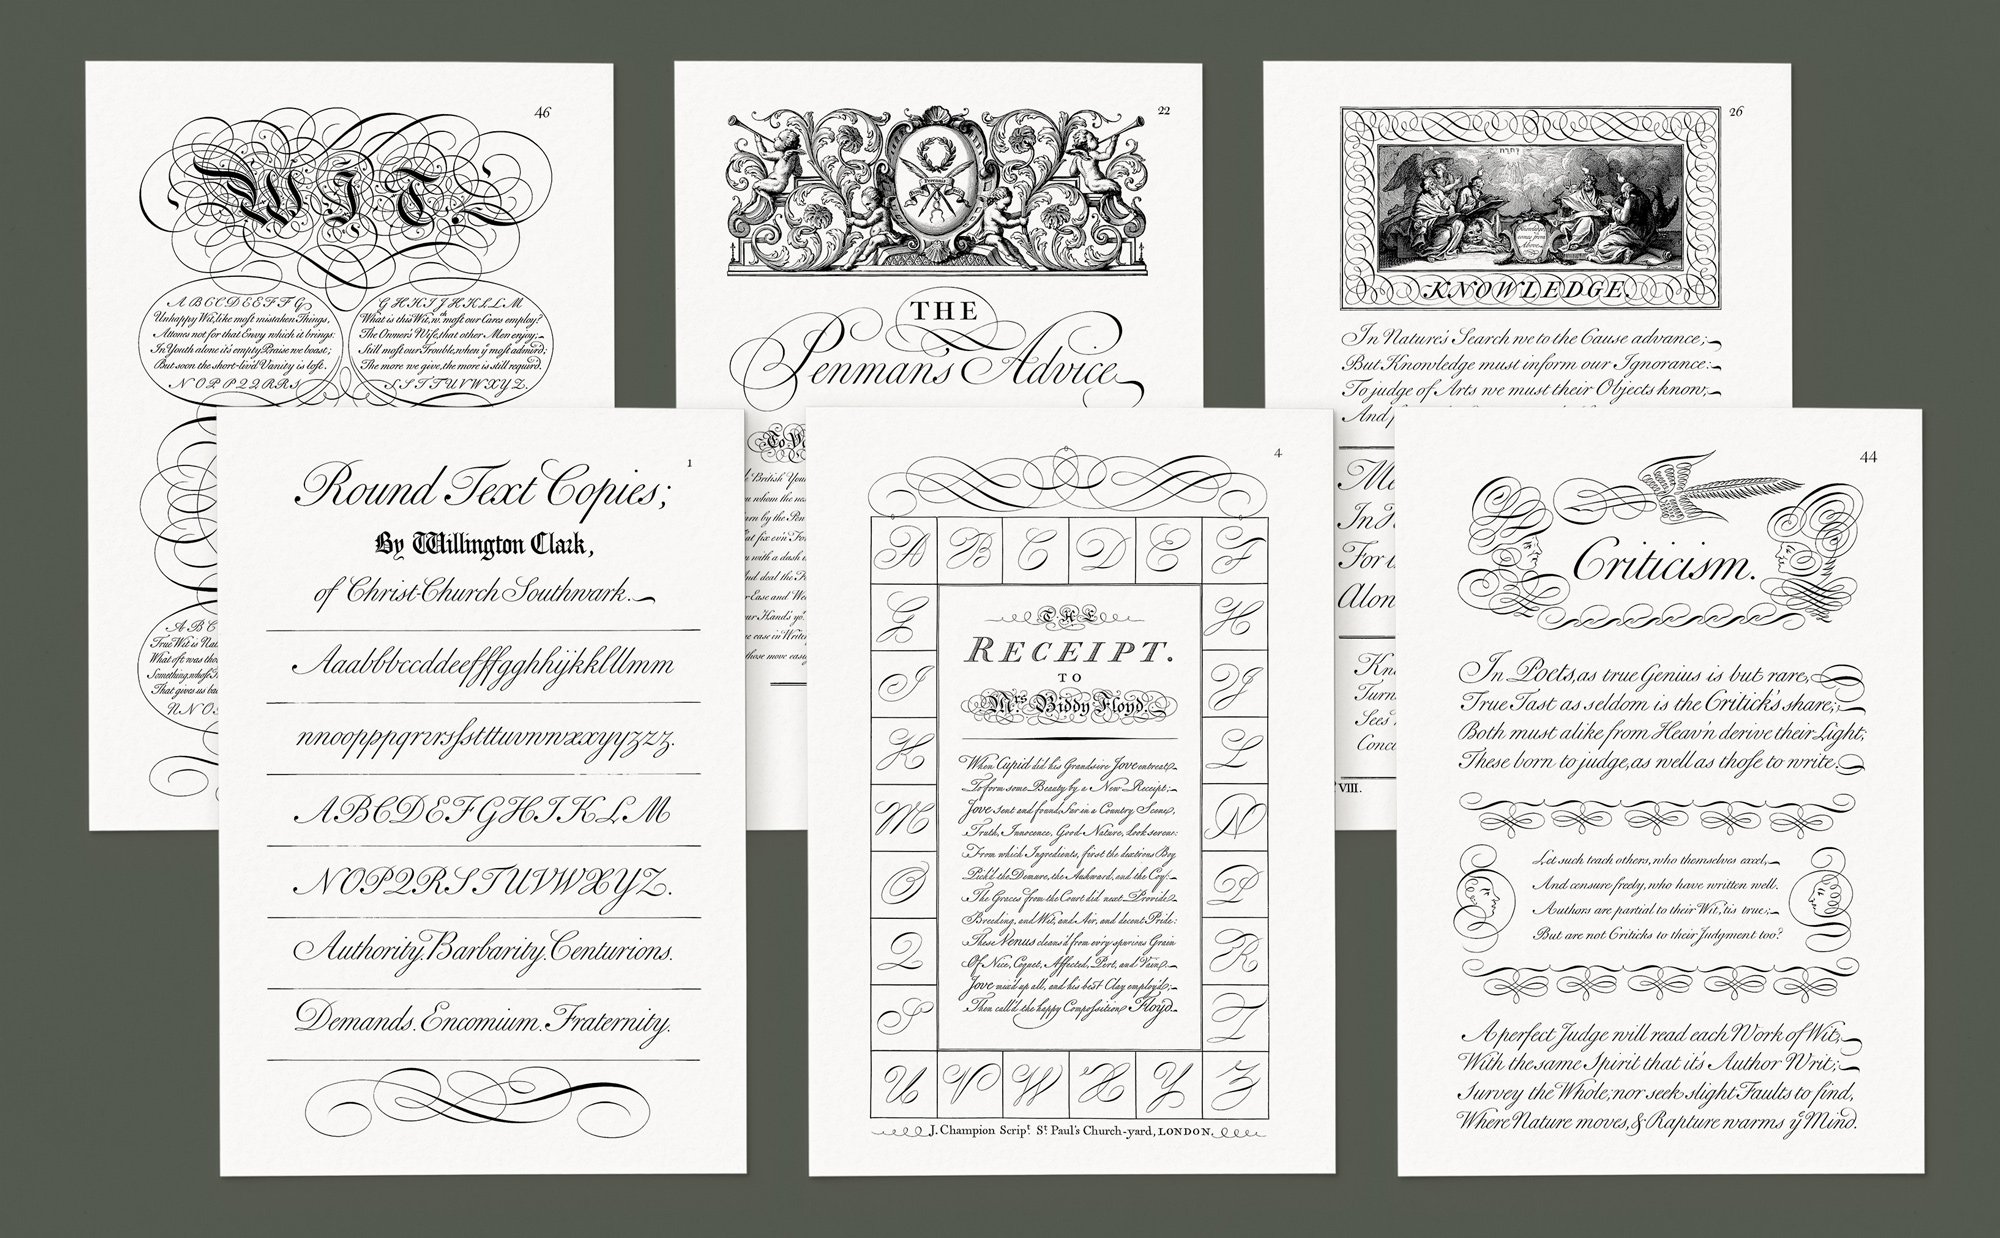 46
WIT.
A B C D E E F F G
Unhappy Wit, like moſt mistaken Things,
Attones not for that Envy which it brings.
In Youth alone it's empty Praise we boast;
But soon the short-liv'd Vanity is lost.
N O P P 2 2 R R S
G H H I J J H K L L M
What is this Wit, wth moſt our Cares employ?
The Owner's Wife, that other Men enjoy;
Still moſt our Trouble, when ye moſt admir'd;
The more we give, the more is still requir'd.
S S T T U V W X Y Z.
A B C
True Wit is Nat
What oft was tho
Something, whose
That gives us bac
N N O
22
Perennis
THE
Penman's Advice
To Yo
British You
whom the
by the Pen
fix ev'n
with a dash
deal the
Ease and We
Hands yo
ease in Writin
those move easi
26
יהוה
Knowledge comes from Above
KNOWLEDGE.
In Nature's Search we to the Cause advance;
But Knowledge must inform our Ignorance:
To judge of Arts we must their Objects know;
And
In
For
Alon
Kn
Turn
Sees
Conc
VIII.
1
Round Text Copies;
By Willington Clark,
of Christ-Church Southwark.
Aaabbbccddeefffgghhijkkllllmm
nnoopppqrrrsſsttttuvwwxxyyzzz.
ABCDEFGHIKLM
NOPQRSTUVWXYZ.
Authority. Barbarity. Centurions.
Demands. Encomium. Fraternity.
4
A B C D E F
G H
I J
K L
M N
O P
Q R
S T
U V W X Y Z
THE
RECEIPT.
TO
Mrs Biddy Floyd.
When Cupid did his Grandsire Jove entreat
To form some Beauty by a New Receipt;
Jove sent and found, far in a Country Scene,
Truth, Innocence, Good-Nature, look serene:
From which Ingredients, first the dextrous Boy
Pick'd the Demure, the Aukward, and the Coy:
The Graces from the Court did next Provide
Breeding, and Wit, and Air, and decent Pride:
These Venus cleans'd from ev'ry spurious Grain
Of Nice, Coquet, Affected, Pert, and Vain.
Jove mix'd up all, and his best Clay employ'd;
Then call'd the happy Compoſition Floyd.
J. Champion Scripᵗ. Sᵗ. Paul's Church-yard, LONDON.
44
Criticism.
In Poets, as true Genius is but rare,
True Tast as seldom is the Critick's share;
Both must alike from Heav'n derive their Light;
These born to judge, as well as thoſe to write.
Let such teach others, who themselves excel,
And censure freely, who have written well.
Authors are partial to their Wit, 'tis true;
But are not Criticks to their Judgment too?
A perfect Judge will read each Work of Wit,
With the same Spirit that it's Author Writ;
Survey the Whole, nor seek slight Faults to find,
Where Nature moves, & Rapture warms ye Mind.